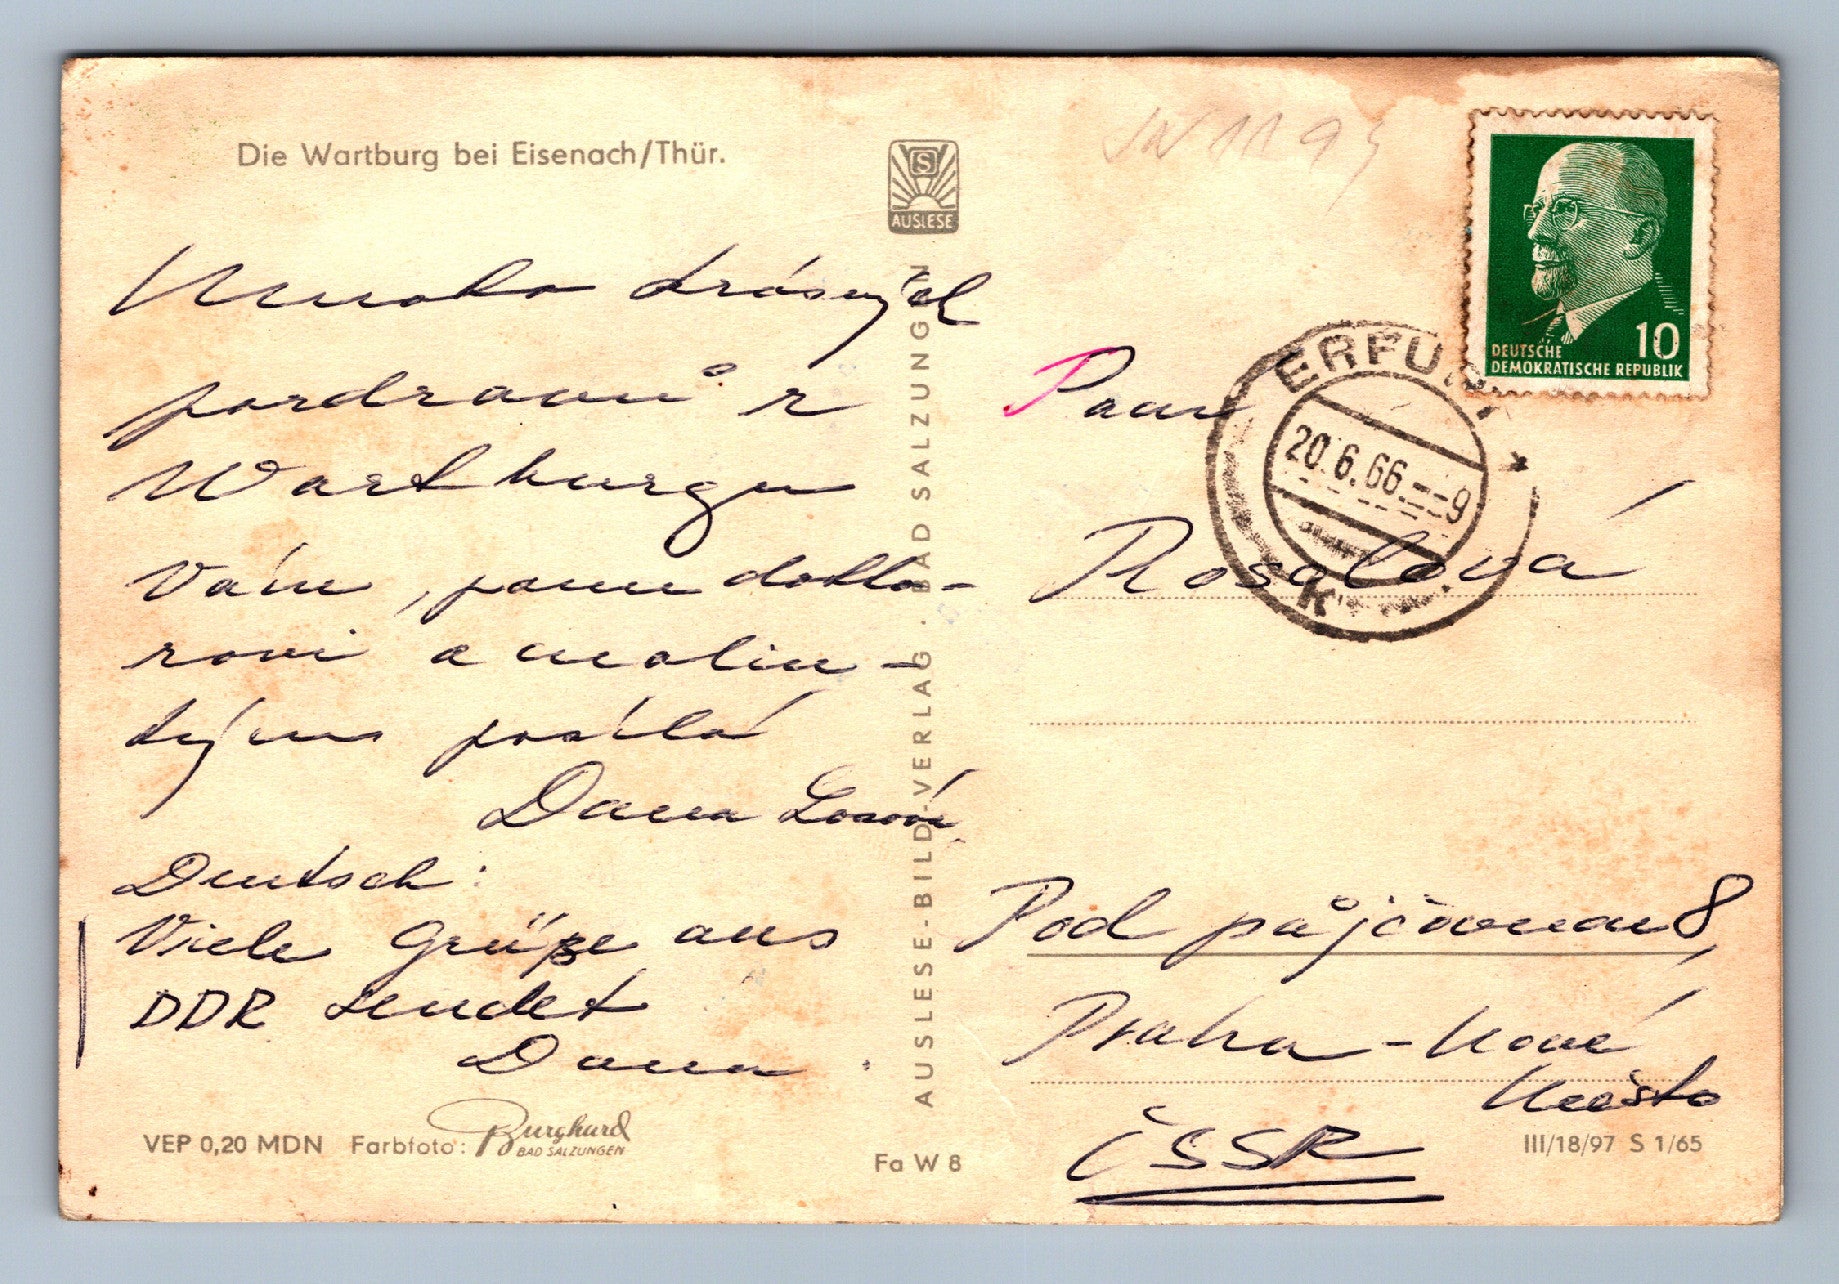 Die Wartburg bei Eisenach/Thür.
AUSLESE
Mnoho krásných
pozdravů z
Wartburgu
Vám, panu dokto-
rovi a malin-
kým posílá
Dana
Deutsch:
Viele Grüße aus
DDR sendet
Dana
VEP 0,20 MDN Farbfoto: Burghard
BAD SALZUNGEN
Fa W 8
AUSLESE-BILD-VERLAG · BAD SALZUNGEN
10
DEUTSCHE
DEMOKRATISCHE REPUBLIK
ERFURT
20.6.66.--9
k
Paní
Rosolová
Pod půjčovnou 8,
Praha - Nové
Město
ČSSR
III/18/97 S 1/65